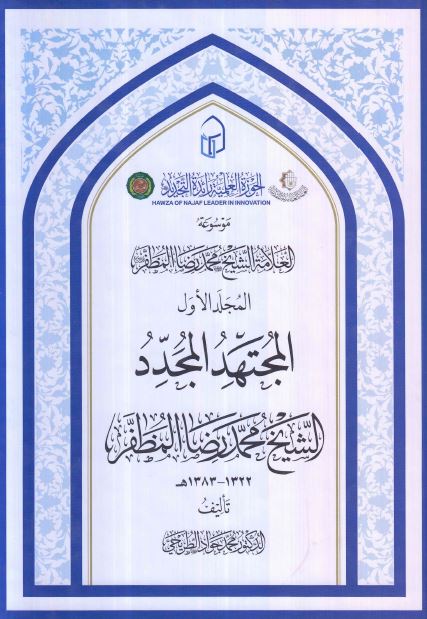 الحوزة العلمية رائدة التجديد
HAWZA OF NAJAF LEADER IN INNOVATION
مَوْسُوعَةُ
العَلَّامَة الشَّيْخ مُحَمَّد رِضَا المُظَفَّر
المُجَلَّدُ الأَوَّل
المُجْتَهِدُ المُجَدِّدُ
الشَّيْخ مُحَمَّد رِضَا المُظَفَّر
١٣٢٢-١٣٨٣هـ
تَأْلِيفُ
الدكتور محمد جواد الطريحي